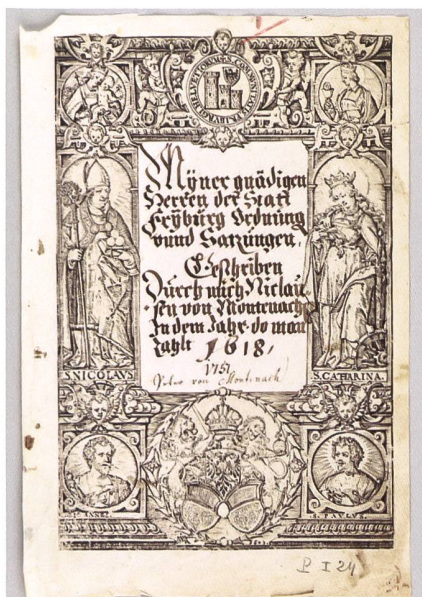 Myner gnädigen
Herren der Statt
Fryburg Ordnung
vnnd Satzungen.
Geschriben
Durch mich Niclau
sen von Montenach
In dem Jahr do man
zahlt 1618.
1751
von Montenach
S. NICOLAVS
S. CATHARINA.
S. PAVLVS
P I 24